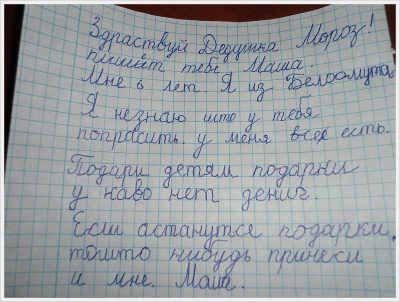 Здраствуй Дедушка Мороз!
пишиет тебе Маша.
Мне 6 лет. Я из Белоомута.
Я незнаю што у тебя
попрасить. у меня всех есть.
Подари детям подарки
у каво нет дениг.
Если астанутся подарки,
тошто нибудь принеси
и мне. Маша.